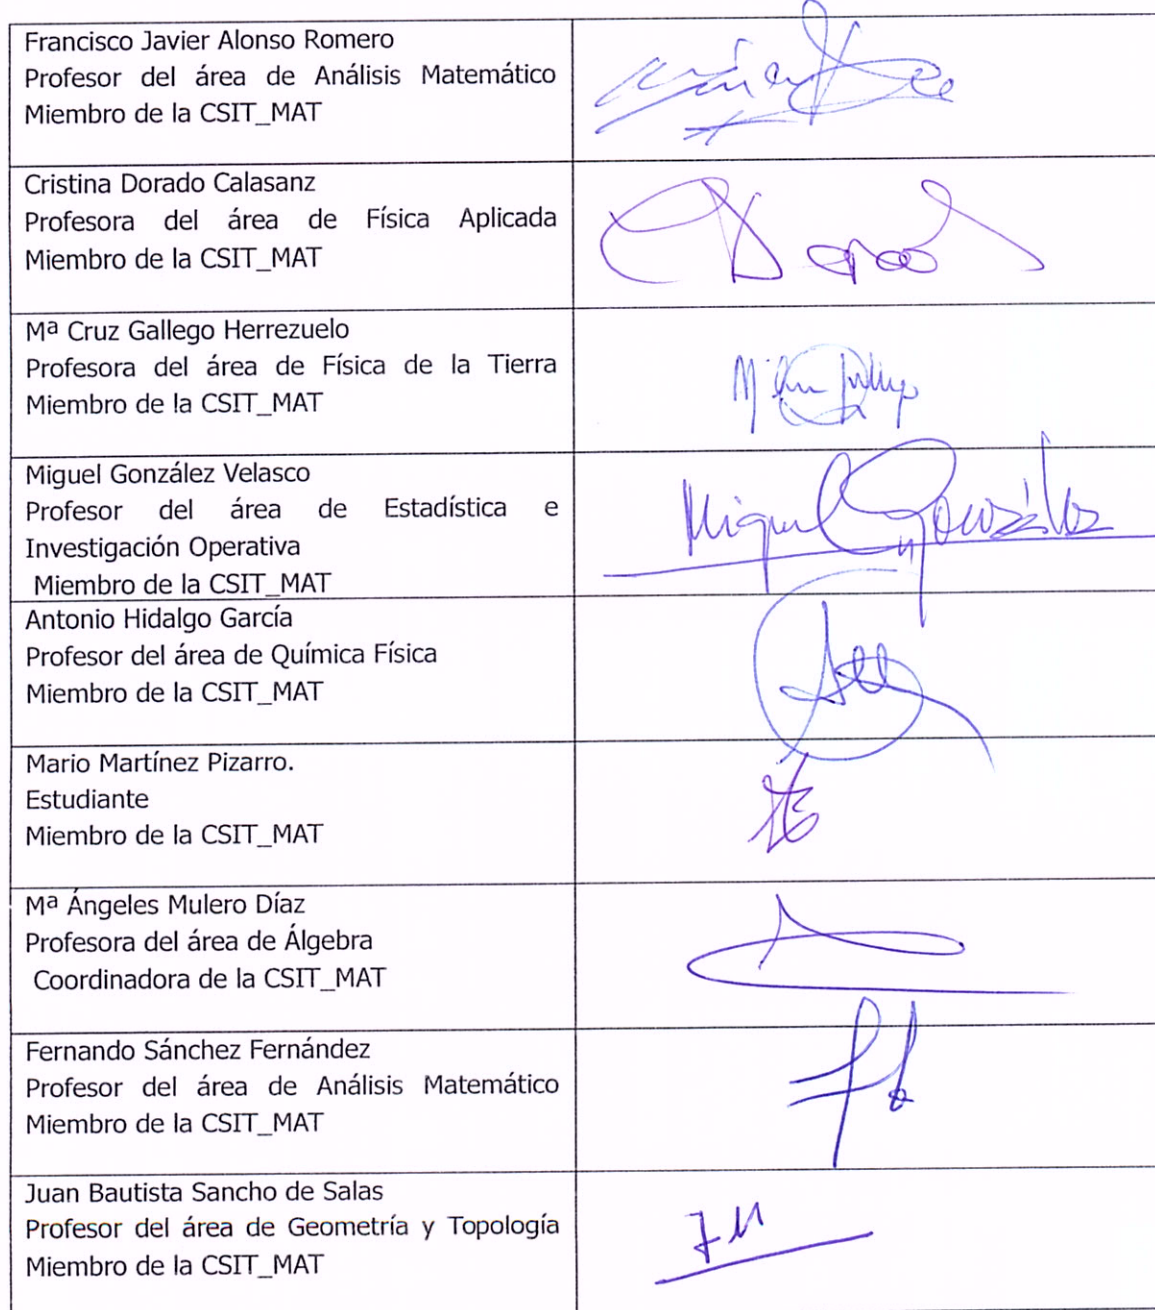 Francisco Javier Alonso Romero
Profesor del área de Análisis Matemático
Miembro de la CSIT_MAT
Cristina Dorado Calasanz
Profesora del área de Física Aplicada
Miembro de la CSIT_MAT
Mª Cruz Gallego Herrezuelo
Profesora del área de Física de la Tierra
Miembro de la CSIT_MAT
Miguel González Velasco
Profesor del área de Estadística e
Investigación Operativa
Miembro de la CSIT_MAT
Miguel González
Antonio Hidalgo García
Profesor del área de Química Física
Miembro de la CSIT_MAT
Mario Martínez Pizarro.
Estudiante
Miembro de la CSIT_MAT
Mª Ángeles Mulero Díaz
Profesora del área de Álgebra
Coordinadora de la CSIT_MAT
Fernando Sánchez Fernández
Profesor del área de Análisis Matemático
Miembro de la CSIT_MAT
Juan Bautista Sancho de Salas
Profesor del área de Geometría y Topología
Miembro de la CSIT_MAT